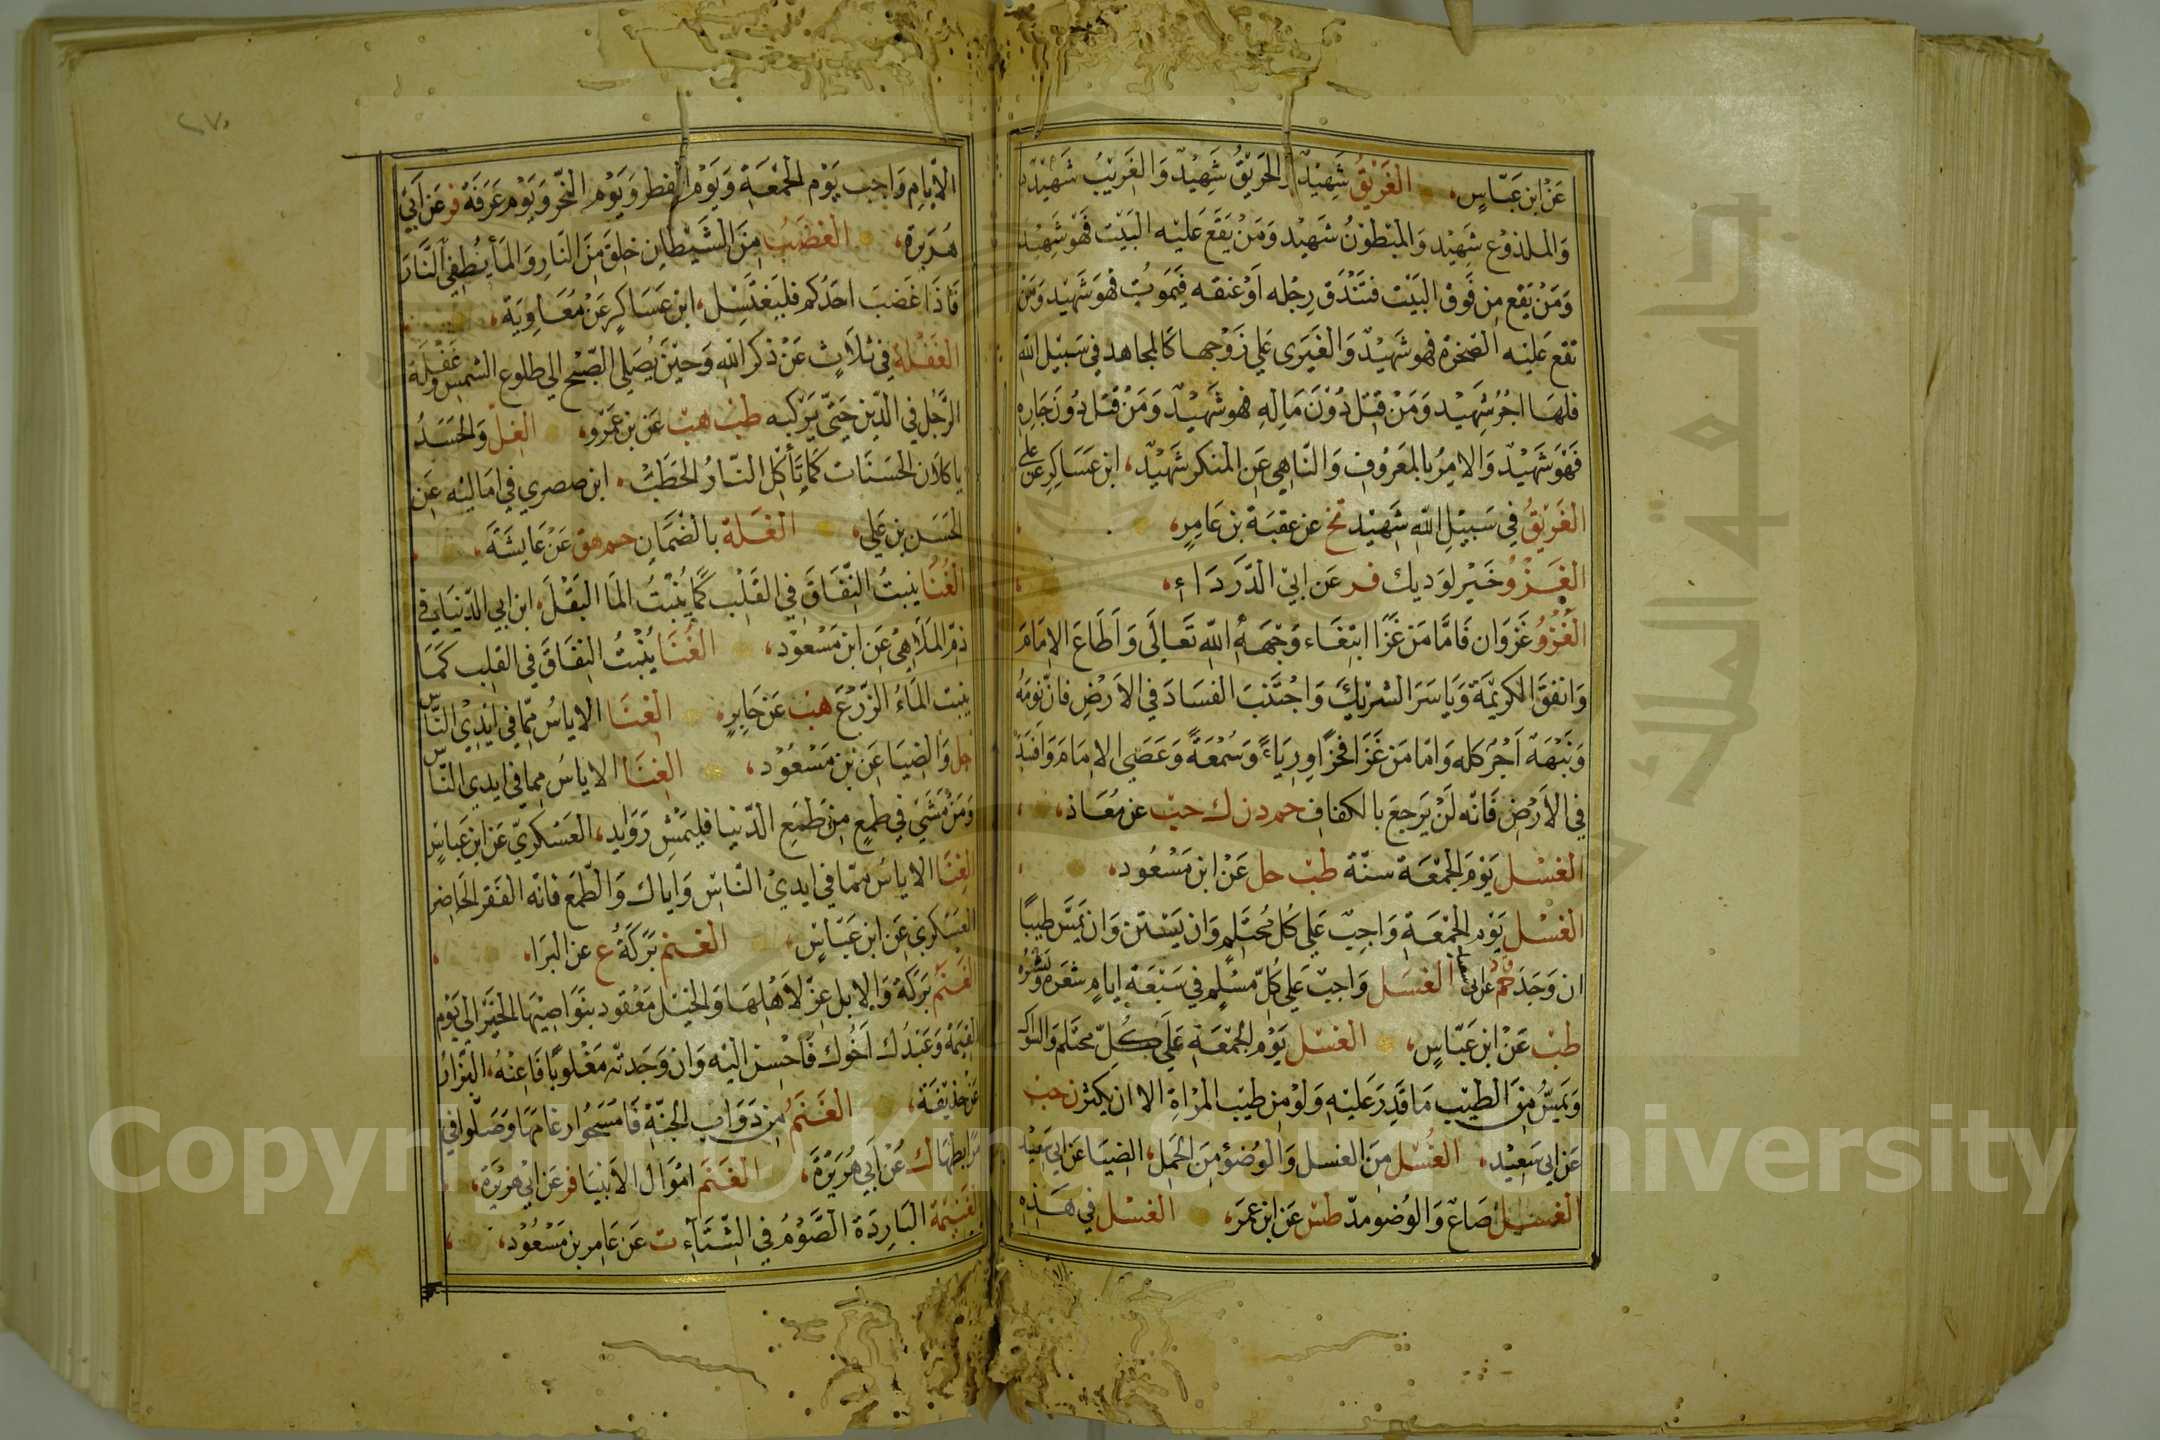 عن ابن عباس، الغريق شهيد والحريق شهيد والغريب شهيد
والملذوع شهيد والمبطون شهيد ومن يقع عليه البيت فهو شهيد
ومن يقع من فوق البيت فتندق رجله او عنقه فيموت فهو شهيد ومن
تقع عليه الصخرة فهو شهيد والغيرى على زوجها كالمجاهد في سبيل الله
فلها اجر شهيد ومن قتل دون ماله فهو شهيد ومن قتل دون جاره
فهو شهيد والامر بالمعروف والناهي عن المنكر شهيد، ابن عساكر عن علي
الغريق في سبيل الله شهيد تخ عن عقبة بن عامر،
الغزو خير لوديك فر عن ابي الدرداء،
الغزو غزوان فاما من غزا ابتغاء وجهه الله تعالى واطاع الامام
وانفق الكريمة وياسر الشريك واجتنب الفساد في الارض فان نومه
ونبهه اجر كله واما من غزا فخرا ورياء وسمعة وعصى الامام وافسد
في الارض فانه لن يرجع بالكفاف حم د ن ك حب عن معاذ،
الغسل يوم الجمعة سنة طب حل عن ابن مسعود،
الغسل يوم الجمعة واجب على كل محتلم وان يستن وان يمس طيبا
ان وجد حم ق د عن ابي سعيد الغسل واجب على كل مسلم في سبعة ايام شعره وبشره
طب عن ابن عباس، الغسل يوم الجمعة على كل محتلم والسواك
ويمس من الطيب ما قدر عليه ولو من طيب المراة الا ان يكثر ن حب
عن ابي سعيد، الغسل من الغسل والوضؤ من الحمل، الضيا عن ابي سعيد
الغسل صاع والوضو مد طس عن ابن عمر، الغسل في هذه
٢٧٠
الايام واجب يوم الجمعة ويوم الفطر ويوم النحر ويوم عرفة فر عن ابي
هريرة، الغضب من الشيطان خلق من النار والما يطفي النار
فاذا غضب احدكم فليغتسل، ابن عساكر عن معاوية،
الغفلة في ثلاث عن ذكر الله وحين يصلي الصبح الى طلوع الشمس وغفلة
الرجل في الدين حتى يركبه طب هب عن بن عمرو، الغل والحسد
ياكلان الحسنات كما تأكل النار الحطب، ابن صصري في اماليه عن
الحسن بن علي، الغلة بالضمان حم هق عن عايشة،
الغنا ينبت النفاق في القلب كما ينبت الما البقل، ابن ابي الدنيا في
ذم الملاهي عن ابن مسعود، الغنا ينبت النفاق في القلب كما
ينبت الماء الزرع هب عن جابر، الغنا الاياس مما في ايدي الناس
حل والضيا عن بن مسعود، الغنا الاياس مما في ايدي الناس
ومن مشى في طمع من طمع الدنيا فليمش روايد، العسكري عن ابن عباس
الغنا الاياس مما في ايدي الناس واياك والطمع فانه الفقر الحاضر
العسكري عن ابن عباس، الغنم بركة ع عن البرا،
الغنم بركة والابل عز لاهلها والخيل معقود بنواصيها الخير الى يوم
القيمة وعبدك اخوك فاحسن اليه وان وجدته مغلوبا فاعنه، البزار
عن حذيفة، الغنم من دواب الجنة فامسحوا رغامها وصلوا في
مرابطها ك عن ابي هريرة، الغنم اموال الانبيا فر عن ابي هريرة،
الغنيمة الباردة الصوم في الشتاء ت عن عامر بن مسعود،
جامعة الملك سعود
Copyright © King Saud University